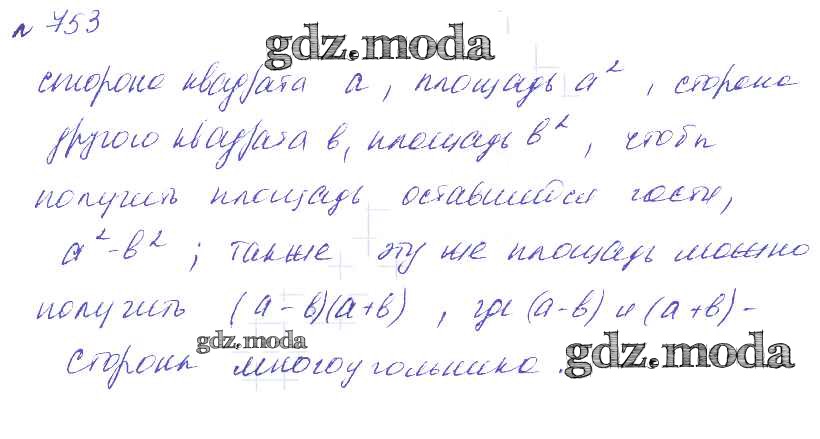 № 753
gdz.moda
сторона квадрата a, площадь a², сторона
другого квадрата b, площадь b², чтобы
получить площадь оставшейся части,
a² - b²; также эту же площадь можно
получить (a - b)(a + b), где (a - b) и (a + b) -
gdz.moda
стороны многоугольника.
gdz.moda